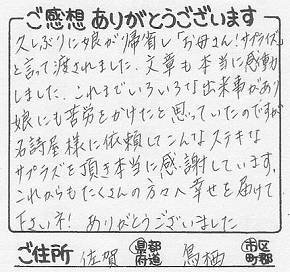 ご感想 ありがとうございます
久しぶりに娘が帰省し「お母さん!サプライズ」
と言って渡されました。文章も本当に感動
しました。これまでいろいろな出来事があり
娘にも苦労をかけたと思っていたのですが
名詩屋様に依頼してこんなステキな
サプライズを頂き本当に感謝しています。
これからもたくさんの方々へ幸せを届けて
下さいネ! ありがとうございました
ご住所 佐賀 県都府道 鳥栖 市区町郡